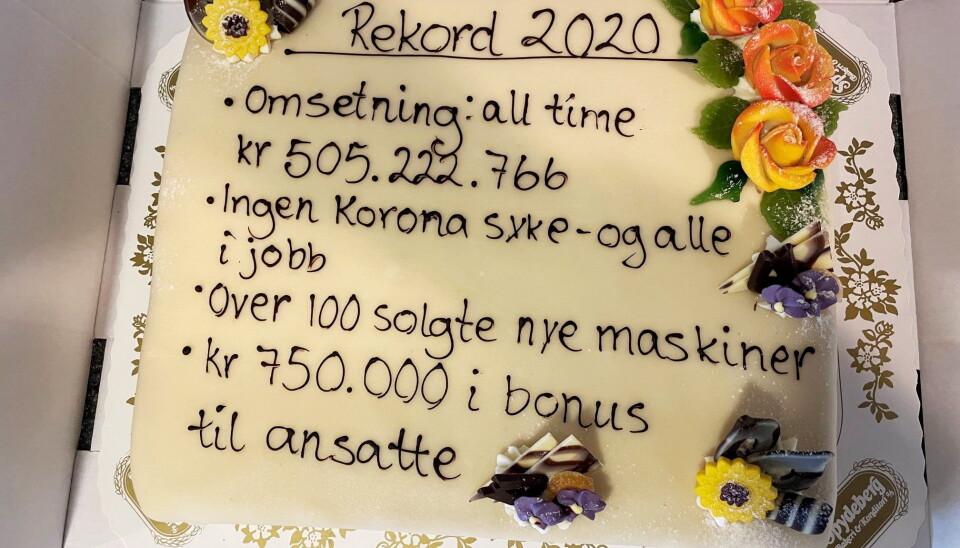 Rekord 2020
• Omsetning: all time
kr 505.222.766
• Ingen Korona syke - og alle
i jobb
• Over 100 solgte nye maskiner
• kr 750.000 i bonus
til ansatte
Spydeberg